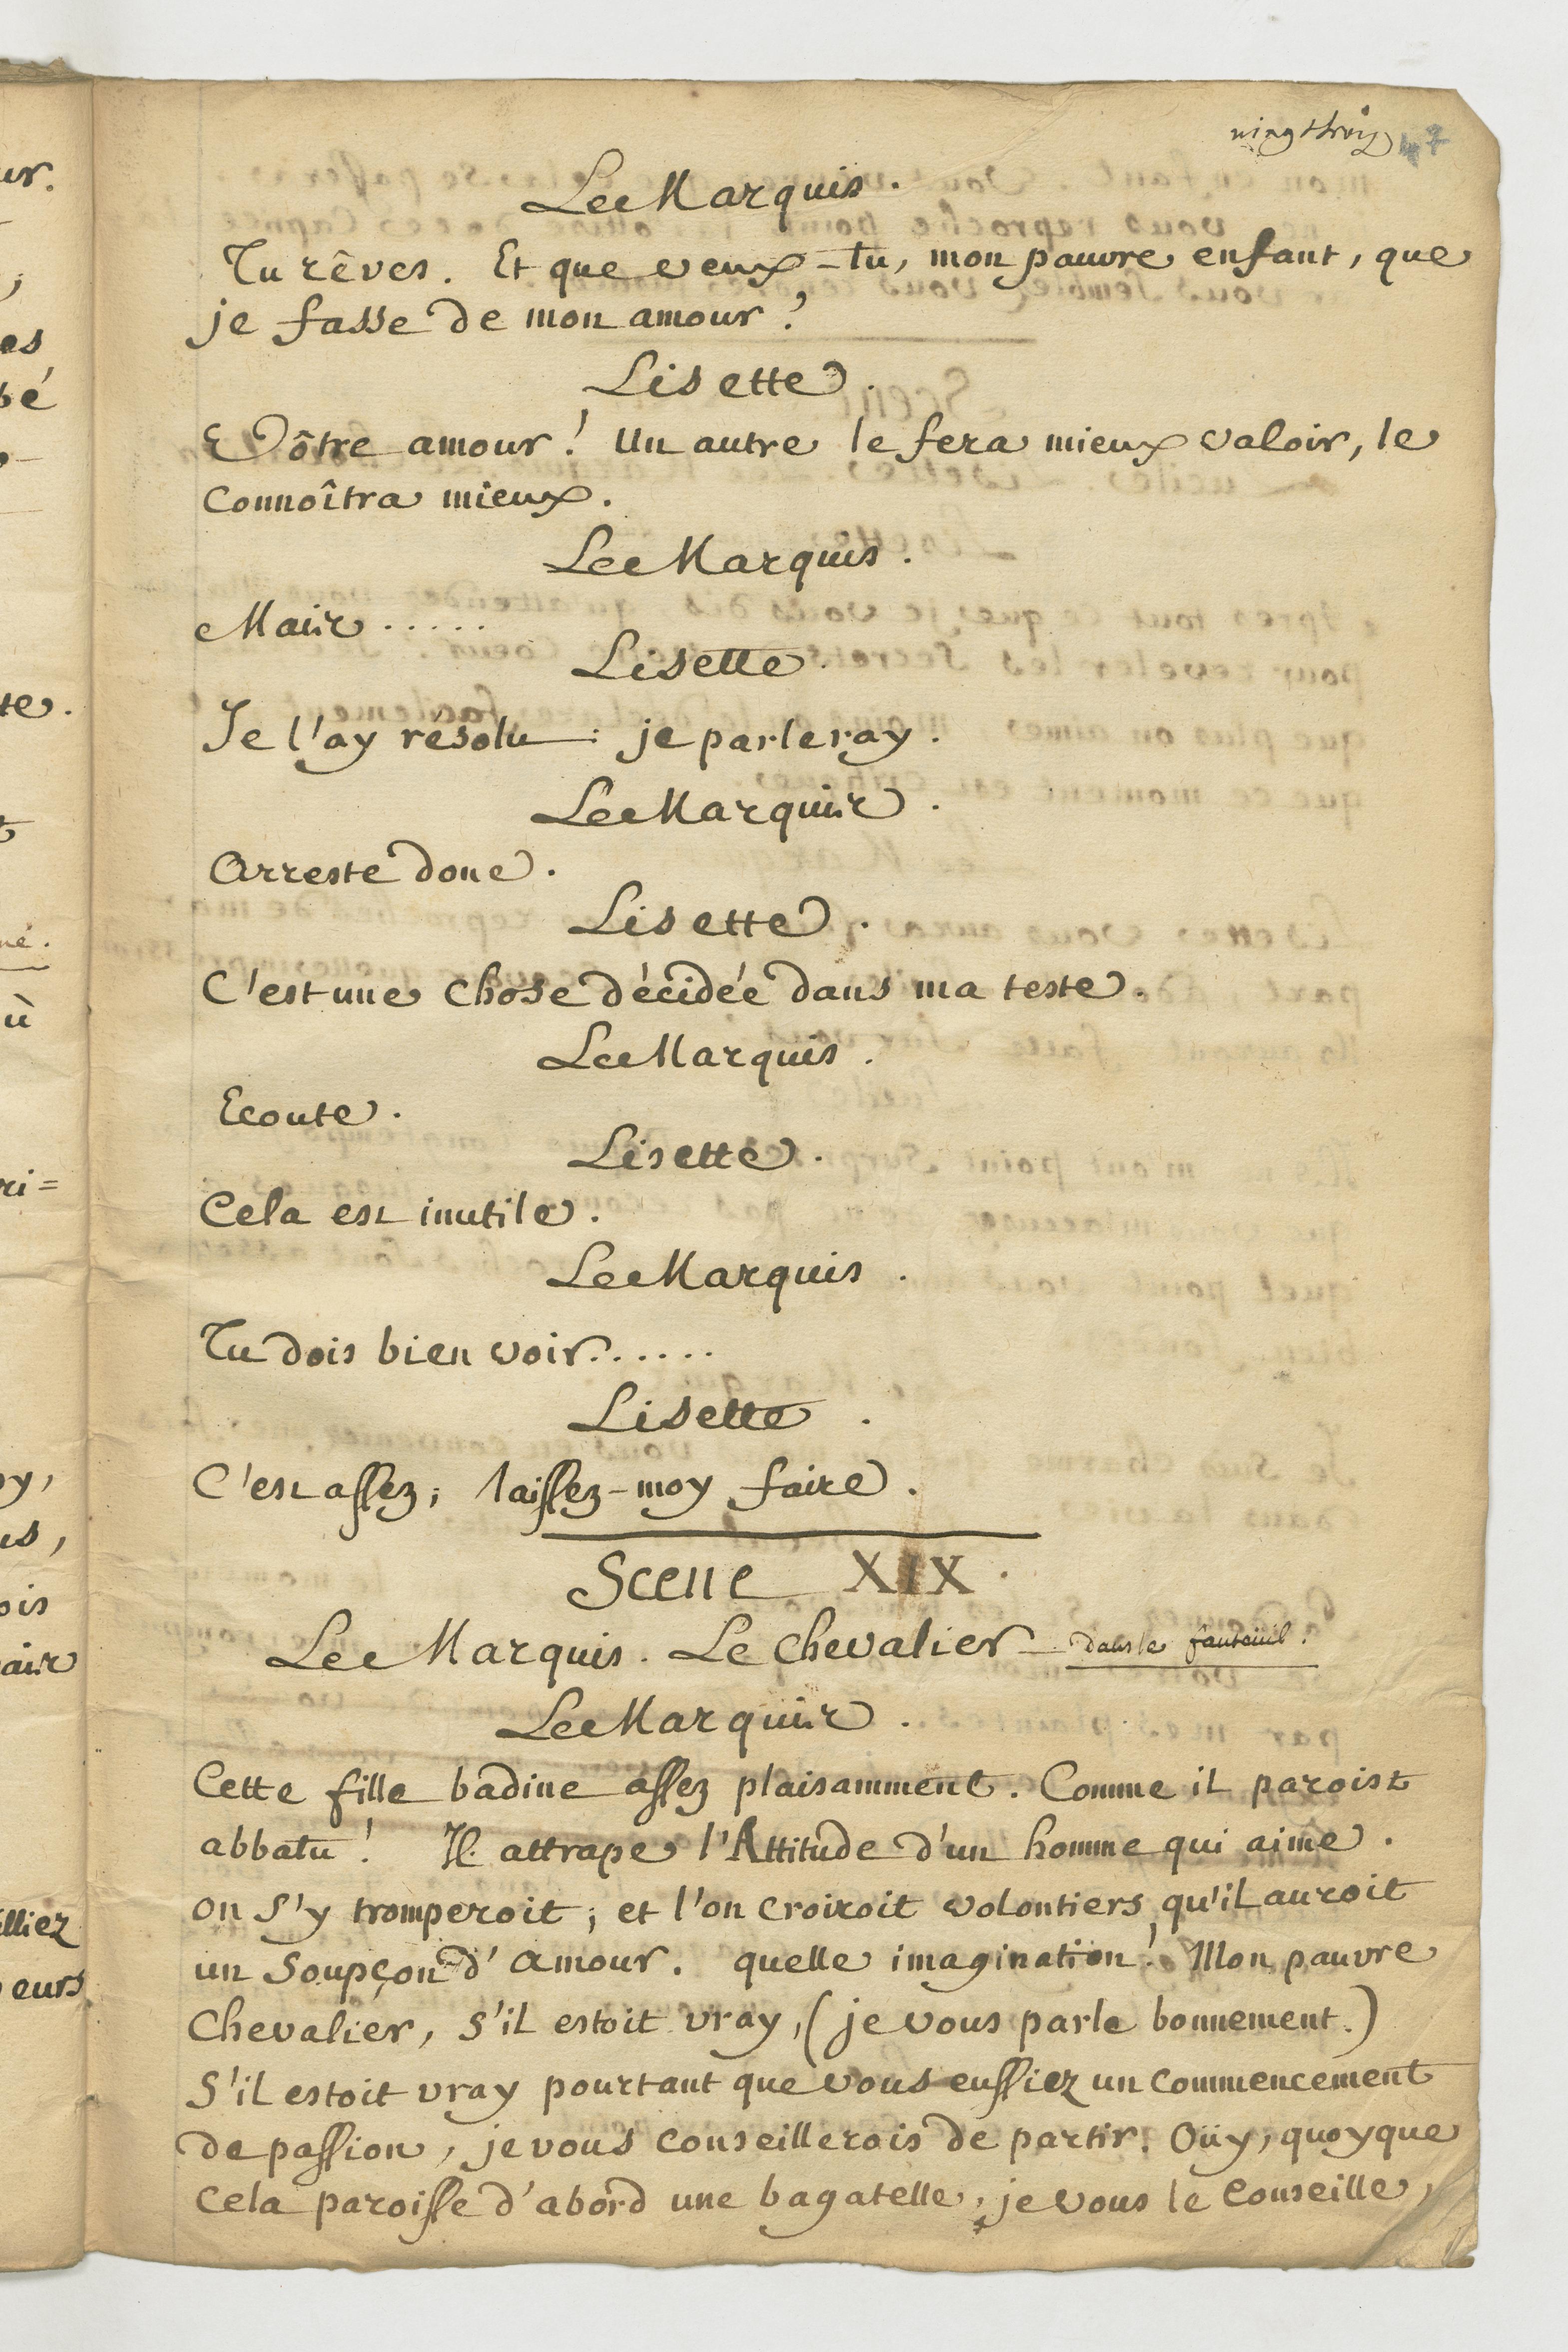 vingt trois 47
Le Marquis.
Tu rêves. Et que veux-tu, mon pauvre enfant, que
je fasse de mon amour?
Lisette.
Vôtre amour! Un autre le fera mieux valoir, le
connoîtra mieux.
Le Marquis.
Mais.....
Lisette.
Je l'ay résolu: je parleray.
Le Marquis.
Arreste donc.
Lisette.
C'est une chose décidée dans ma teste.
Le Marquis.
Ecoute.
Lisette.
Cela est inutile.
Le Marquis.
Tu dois bien voir......
Lisette.
C'est assez; laissez-moy faire.
Scene XIX.
Le Marquis. Le Chevalier dans le fauteuil.
Le Marquis.
Cette fille badine assez plaisamment. Comme il paroist
abbatu! Il attrape l'Attitude d'un homme qui aime.
on s'y tromperoit; et l'on croiroit volontiers qu'il auroit
un soupçon d'amour. quelle imagination! Mon pauvre
Chevalier, s'il estoit vray, (je vous parle bonnement.)
S'il estoit vray pourtant que vous eussiez un commencement
de passion, je vous conseillerois de partir. Oüy, quoyque
cela paroisse d'abord une bagatelle, je vous le conseille,